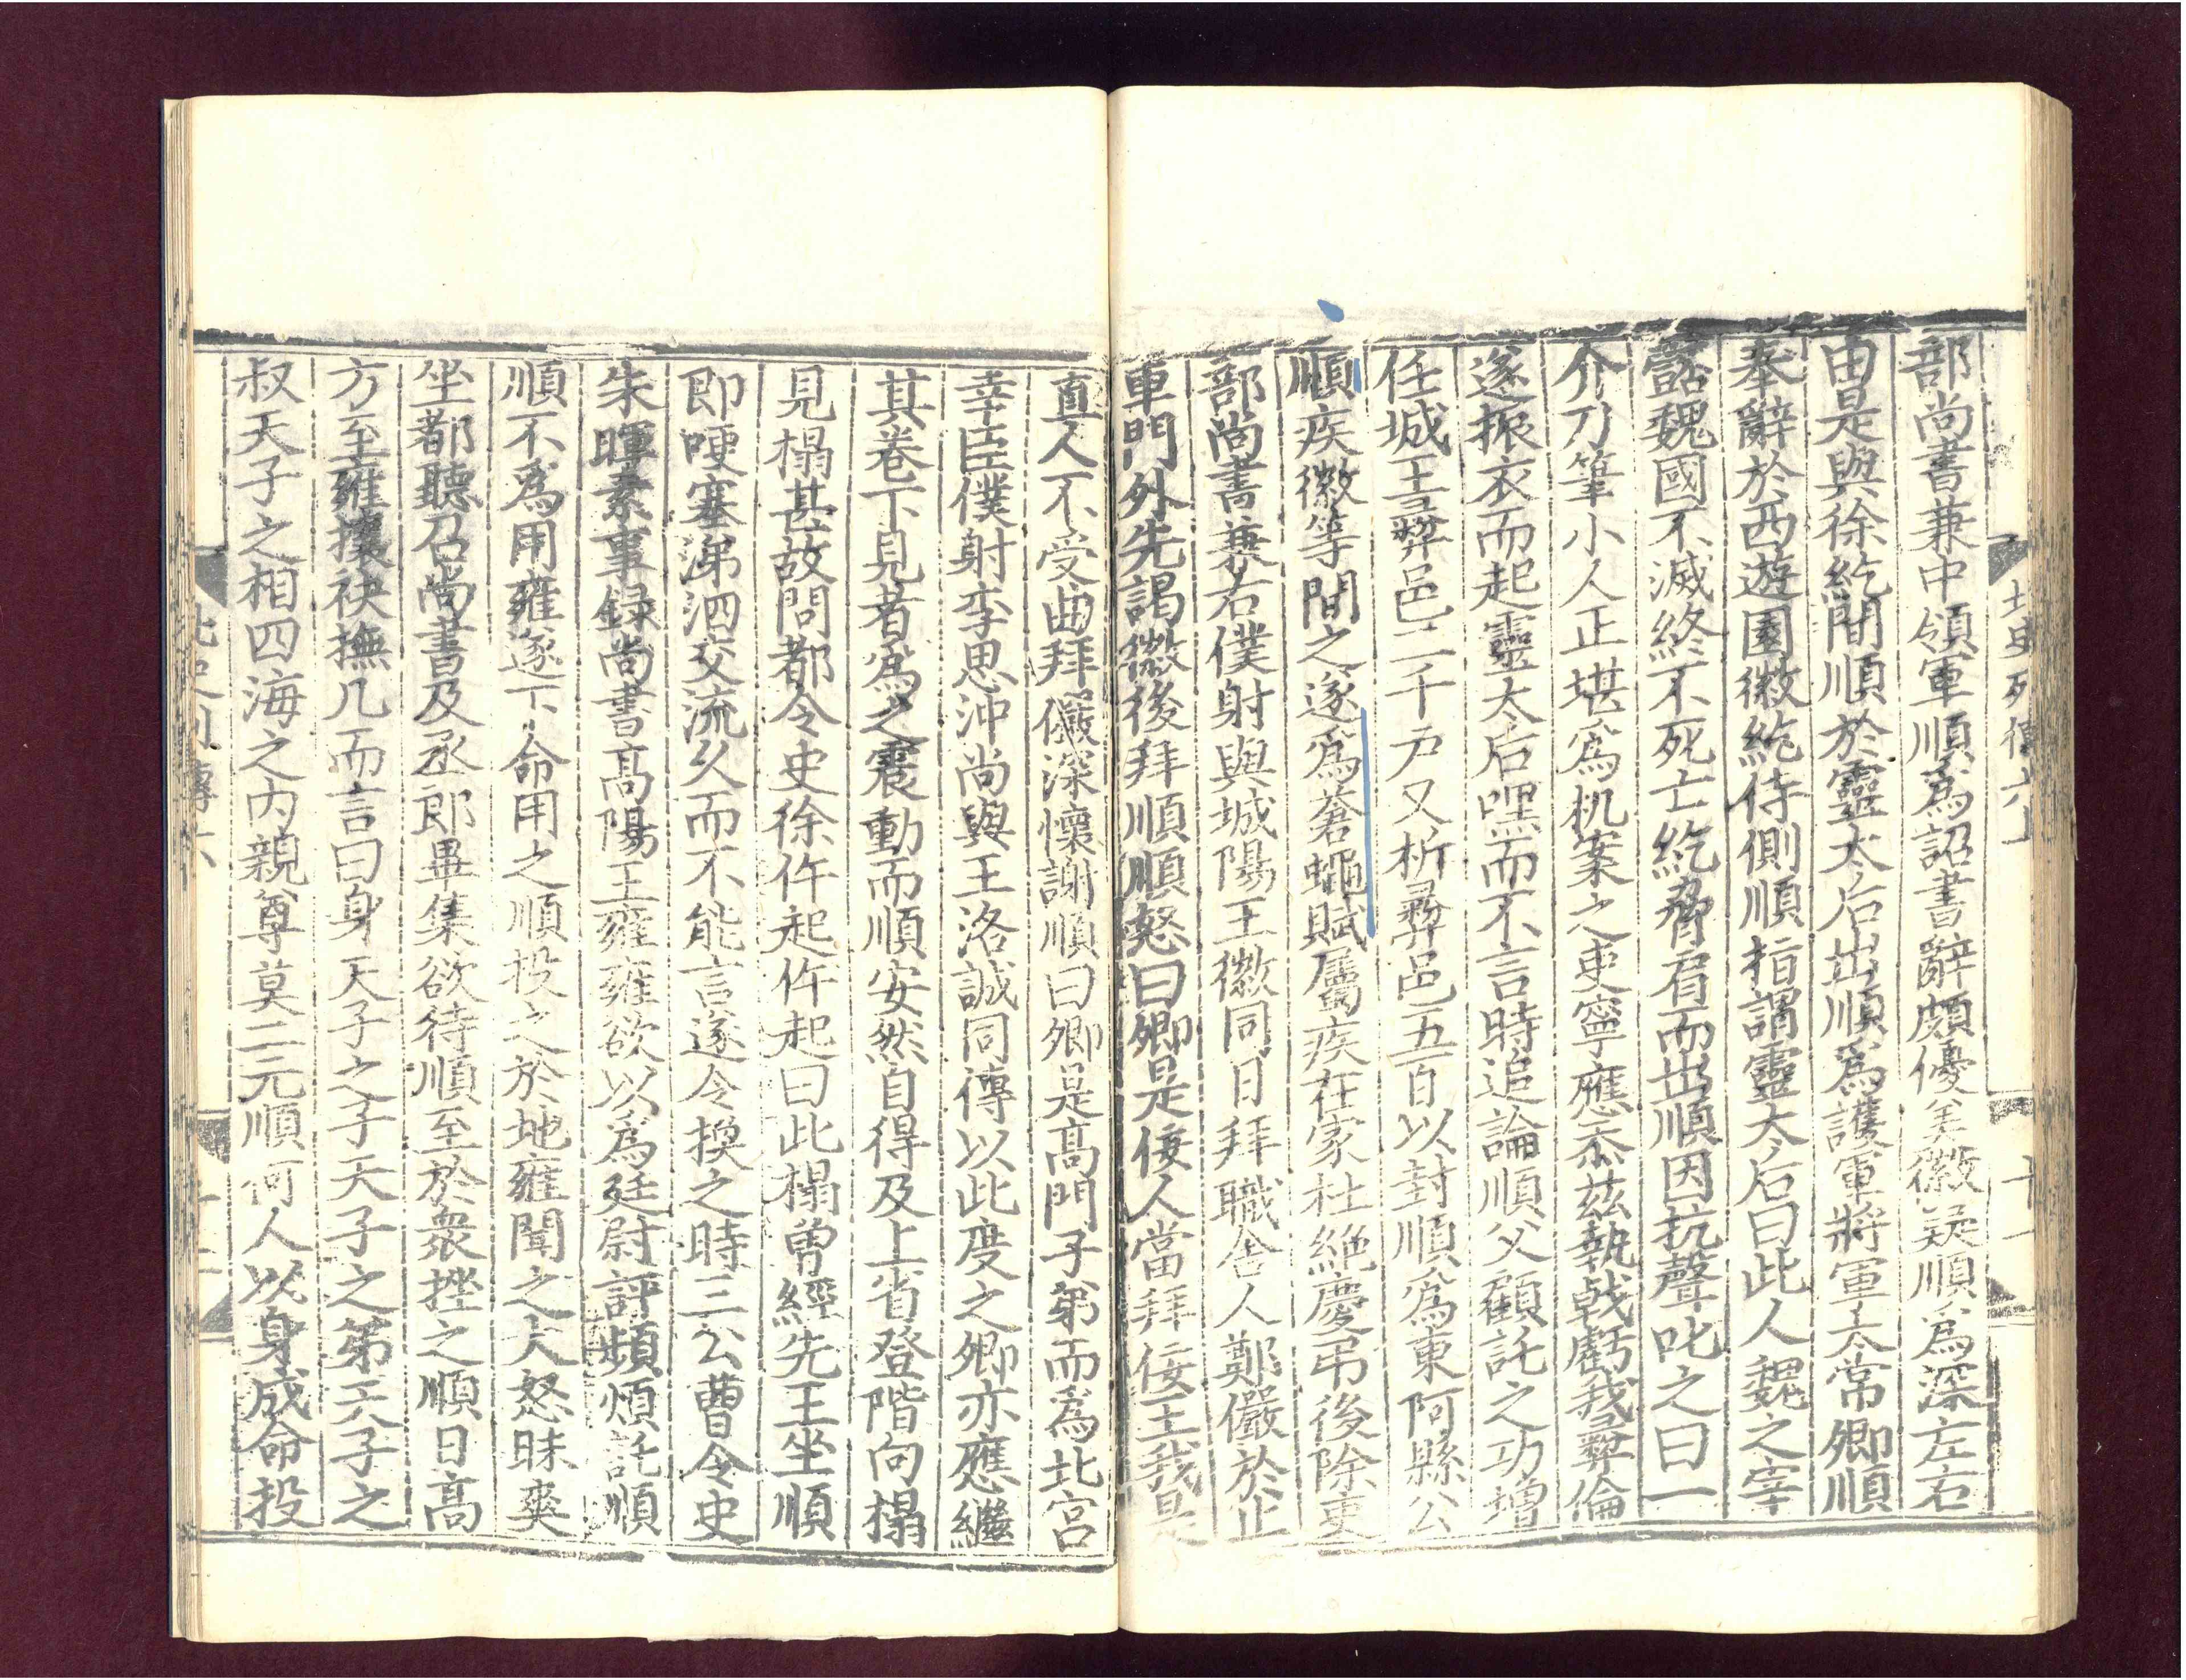 部尚書兼中領軍順爲詔書辭頗優美徽疑順爲深左右
由是與徐紇間順於靈太后出順爲護軍將軍太常卿順
奉辭於西遊園徽紇侍側順指謂靈太后曰此人魏之宰
嚭魏國不滅終不死亡紇脅肩而出順因抗聲叱之曰一
介刀筆小人正堪爲机案之吏寧應忝茲執戟虧我彝倫
遂振衣而起靈太后嘿而不言時追論順父顧託之功增
任城王彝邑二千戸又析彝邑五百以封順爲東阿縣公
順疾徽等間之遂爲蒼蠅賦屬疾在家杜絶慶弔後除吏
部尚書兼右僕射與城陽王徽同日拜職舍人鄭儼於止
車門外先謁徽後拜順順怒曰卿是佞人當拜佞王我是
直人不受曲拜儼深懷謝順曰卿是高門子弟而爲北宮
幸臣僕射李思沖尚與王洛誠同傳以此度之卿亦應繼
其卷下見者爲之震動而順安然自得及上省登階向榻
見榻甚故問都令史徐仵起仵起曰此榻曽經先王坐順
即哽塞涕泗交流久而不能言遂令換之時三公曹令史
朱暉素事録尚書高陽王雍雍欲以爲廷尉評頻煩託順
順不爲用雍遂下命用之順投之於地雍聞之大怒昧爽
坐都聽召尚書及丞郎畢集欲待順至於衆挫之順日高
方至雍攘袂撫几而言曰身天子之子天子之弟天子之
叔天子之相四海之内親尊莫二元順何人以身成命投
北史列傳六
十一